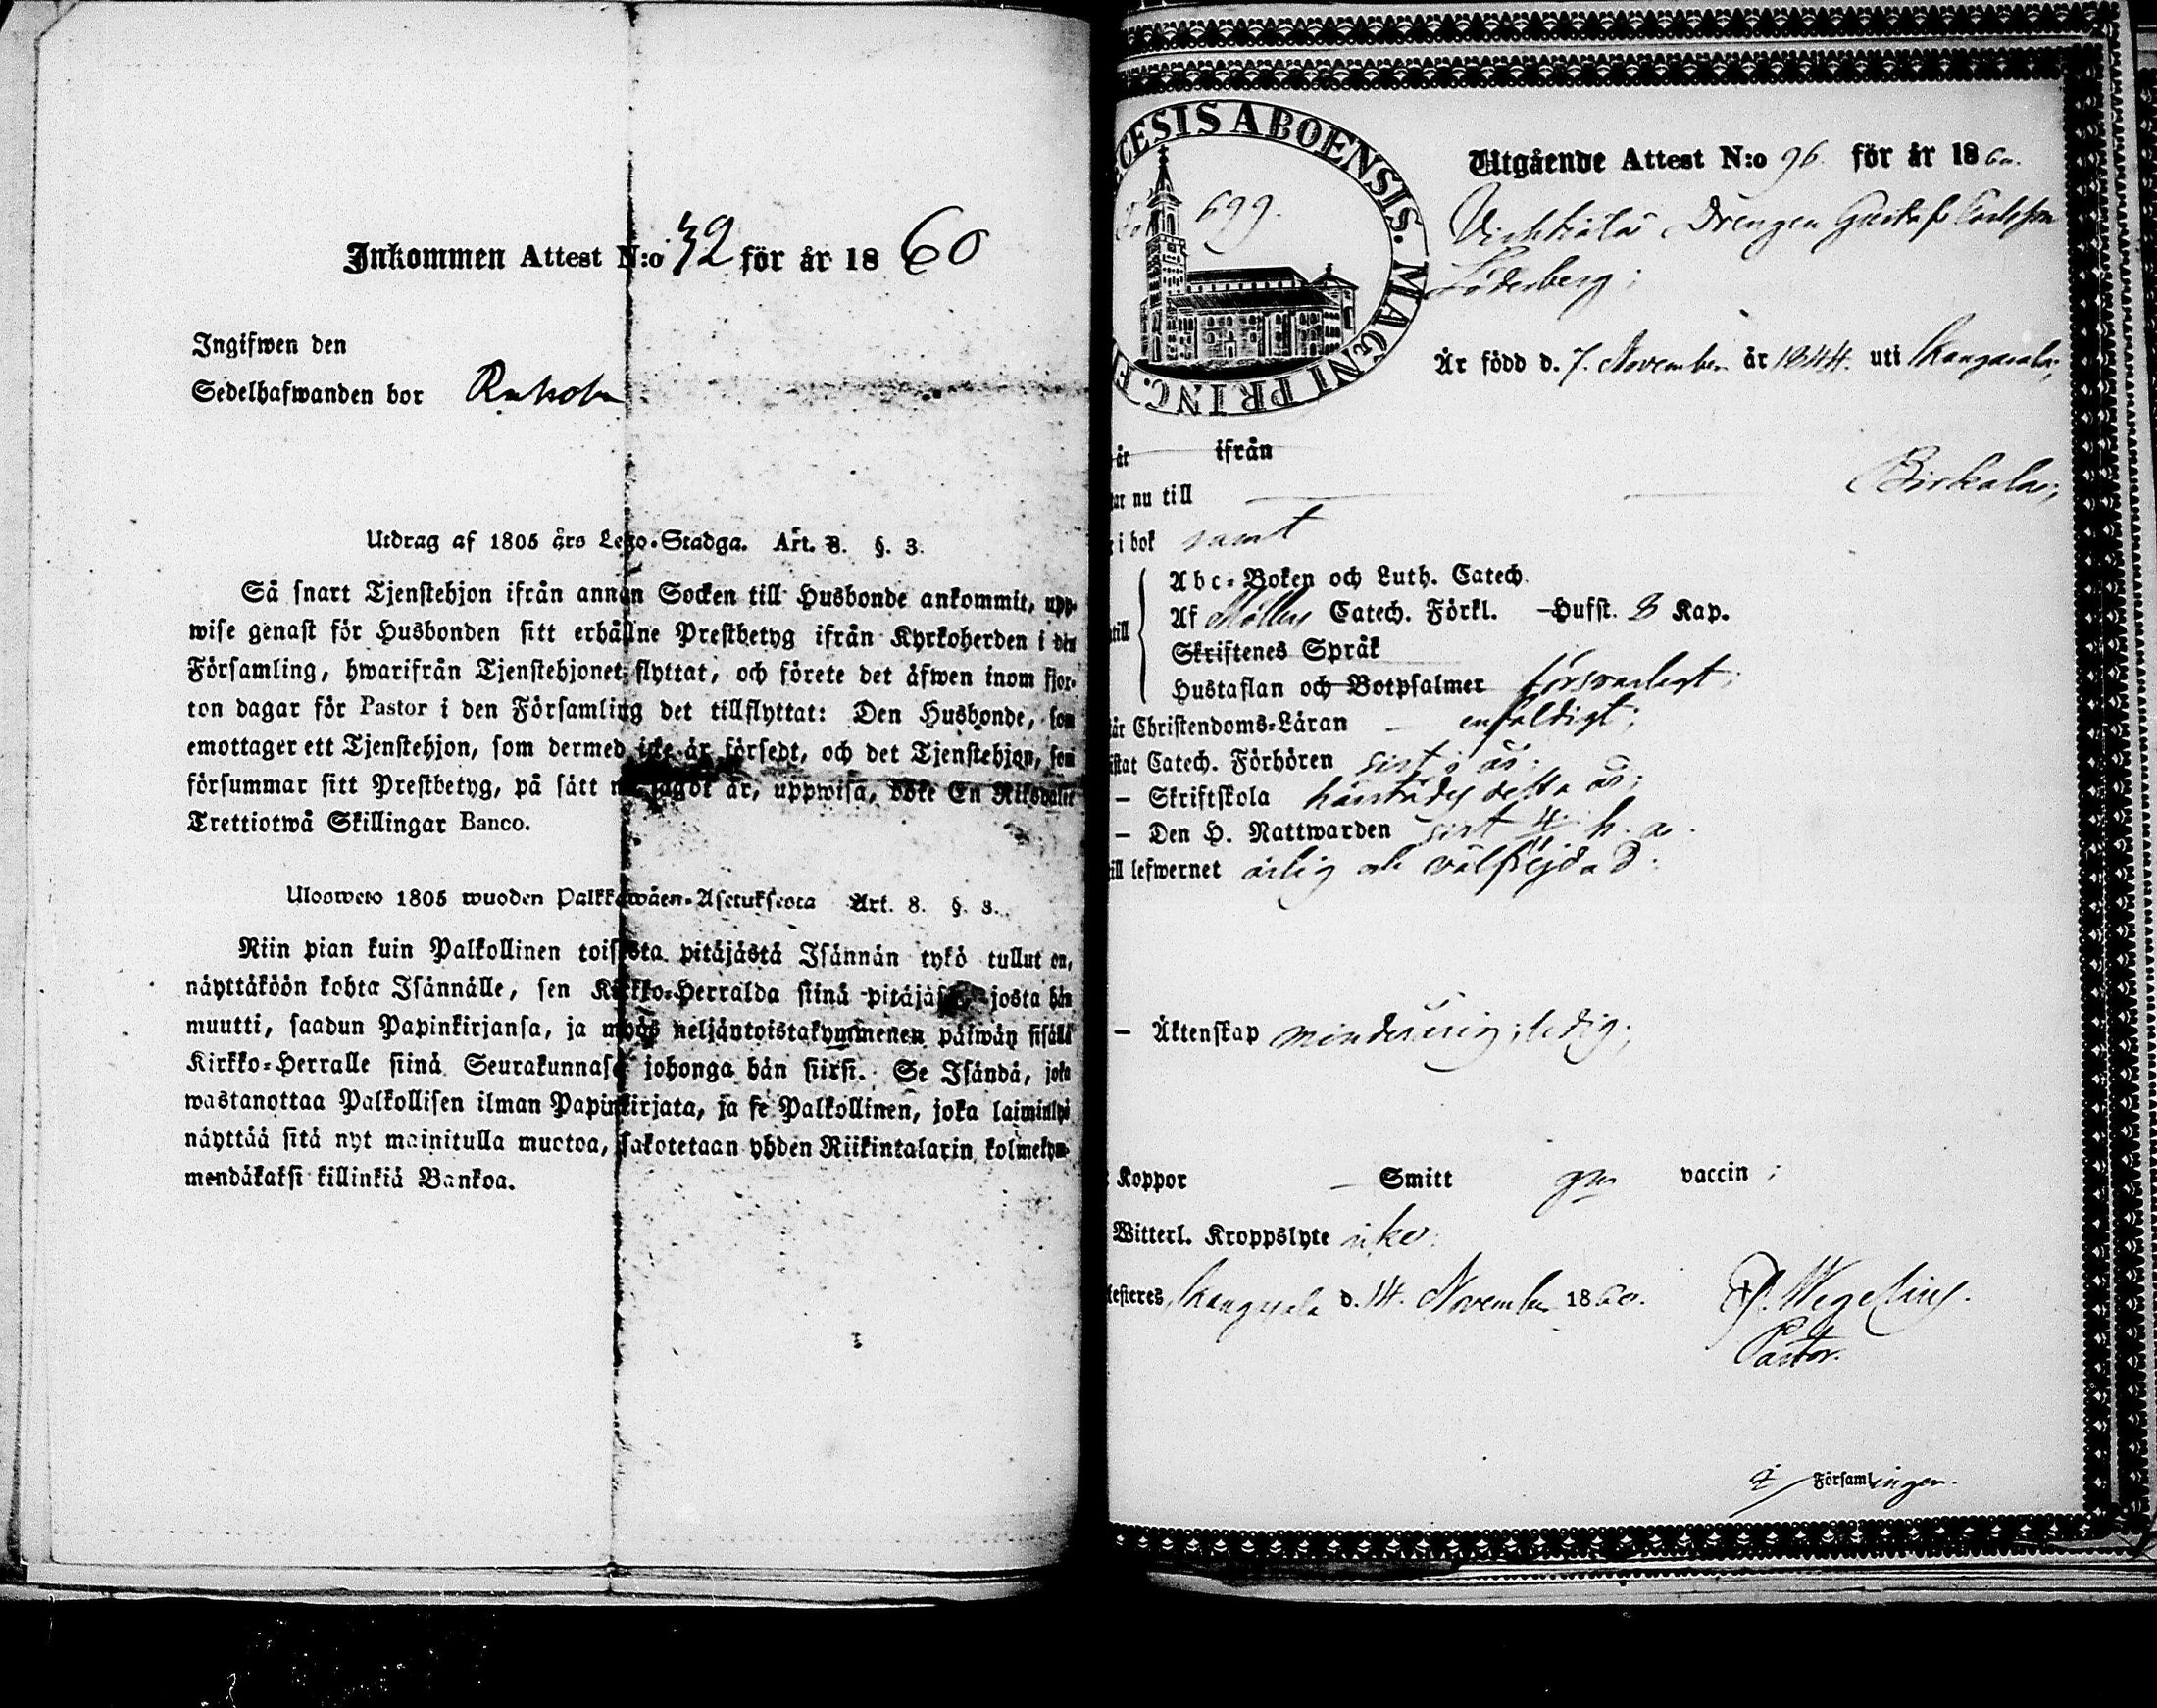 Inkommen Attest N:o 32 för år 1860
Ingifwen den
Sedelhafwanden bor
Utdrag af 1805 års Lego-Stadga. Art. 8. §. 3.
Så snart Tjenstehjon ifrån annan Socken till Husbonde ankommit, upp-
wise genast för Husbonden sitt erhållne Prestbetyg ifrån Kyrkoherden i den
Församling, hwarifrån Tjenstehjonet flyttat, och förete det äfwen inom fjor-
ton dagar för Pastor i den Församling det tillflyttat: Den Husbonde, som
emottager ett Tjenstehjon, som dermed icke är försedt, och det Tjenstehjon, som
försummar sitt Prestbetyg, på sätt nu sagdt är, uppwisa, böte En Riksdaler
Trettiotwå Skillingar Banco.
Ulosweto 1805 wuoden Palkkawäen-Asetuksesta Art. 8. §. 3.
Niin pian kuin Palkollinen toisesta pitäjästä Isännän tykö tullut on,
näyttäköön kohta Isännälle, sen Kirkko-Herralda siinä pitäjäsä, josta hän
muutti, saadun Papinkirjansa, ja myös neljäntoistakymmenen päiwän sisällä
Kirkko-Herralle siinä Seurakunnasa johonga hän siirsi. Se Isändä, joka
wastanottaa Palkollisen ilman Papinkirjata, ja se Palkollinen, joka laiminlyö
näyttää sitä nyt mainitulla muotoa, sakotetaan yhden Riikintalarin kolmekym-
mendäkaksi killinkiä Bankoa.
CESIS ABOENSIS. MAGNI PRINC. F
699.
Utgående Attest N:o 96. för år 1860.
Drengen Gustaf Carlsson
Söderberg;
Är född d. 7. November år 1844. uti Kangasala;
år ifrån
ar nu till Birkala;
i bok samt
Abc-Boken och Luth. Catech.
till Af Möllers Catech. Förkl. Hufst. 8 Kap.
Skriftenes Språk
Hustaflan och Botpsalmer försvarligt;
år Christendoms-Läran enfaldigt;
istat Catech. Förhören sist i år.
– Skriftskola härstädes detta år;
– Den H. Nattwarden sist h. a.
ill lefwernet ärlig och välfrejdad.
– Äktenskap minderårig; ledig;
Koppor Smitt gm vaccin;
Witterl. Kroppslyte icke.
testeres Kangasala d. 14. November 1860. Wegelius.
Pastor.
i Församlingen.